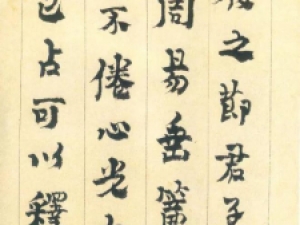 之節君子
周易垂簾
不倦心光
占可以釋